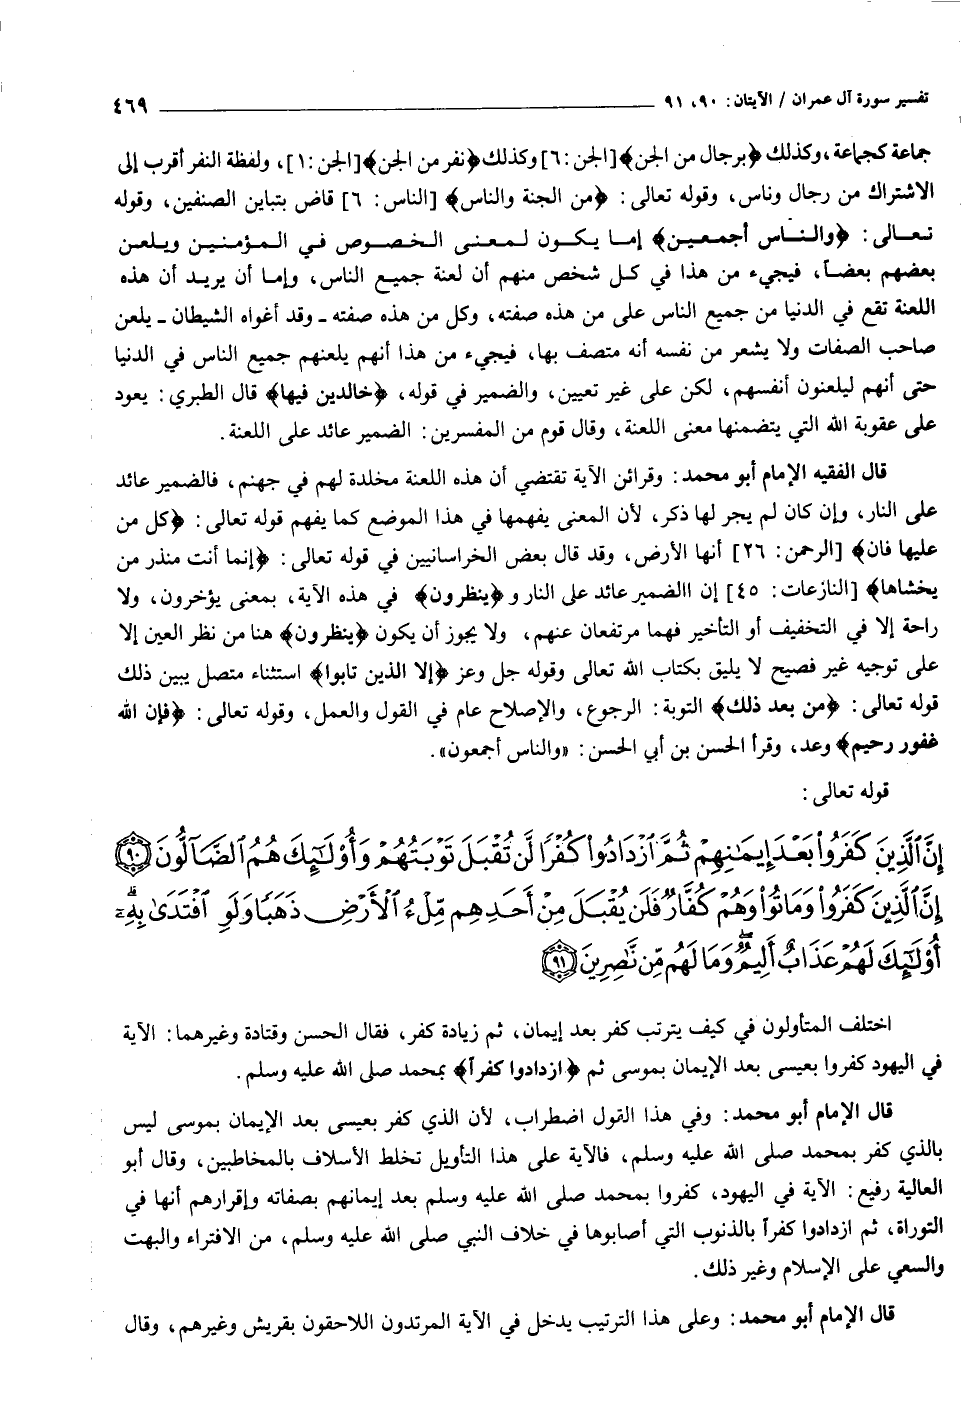 تفسير سورة آل عمران / الآيتان: ٩٠، ٩١ ٤٦٩
جماعة كجماعة، وكذلك ﴿برجال من الجن﴾ [الجن: ٦] وكذلك ﴿نفر من الجن﴾ [الجن: ١]، ولفظة النفر أقرب إلى
الاشتراك من رجال وناس، وقوله تعالى: ﴿من الجنة والناس﴾ [الناس: ٦] قاض بتباين الصنفين، وقوله
تعالى: ﴿والناس أجمعين﴾ إما يكون لمعنى الخصوص في المؤمنين ويلعن
بعضهم بعضاً، فيجيء من هذا في كل شخص منهم أن لعنة جميع الناس، وإما أن يريد أن هذه
اللعنة تقع في الدنيا من جميع الناس على من هذه صفته، وكل من هذه صفته ـ وقد أغواه الشيطان ـ يلعن
صاحب الصفات ولا يشعر من نفسه أنه متصف بها، فيجيء من هذا أنهم يلعنهم جميع الناس في الدنيا
حتى أنهم ليلعنون أنفسهم، لكن على غير تعيين، والضمير في قوله، ﴿خالدين فيها﴾ قال الطبري: يعود
على عقوبة الله التي يتضمنها معنى اللعنة، وقال قوم من المفسرين: الضمير عائد على اللعنة.
قال الفقيه الإمام أبو محمد: وقرائن الآية تقتضي أن هذه اللعنة مخلدة لهم في جهنم، فالضمير عائد
على النار، وإن كان لم يجر لها ذكر، لأن المعنى يفهمها في هذا الموضع كما يفهم قوله تعالى: ﴿كل من
عليها فان﴾ [الرحمن: ٢٦] أنها الأرض، وقد قال بعض الخراسانيين في قوله تعالى: ﴿إنما أنت منذر من
يخشاها﴾ [النازعات: ٤٥] إن االضمير عائد على النار و﴿ينظرون﴾ في هذه الآية، بمعنى يؤخرون، ولا
راحة إلا في التخفيف أو التأخير فهما مرتفعان عنهم، ولا يجوز أن يكون ﴿ينظرون﴾ هنا من نظر العين إلا
على توجيه غير فصيح لا يليق بكتاب الله تعالى وقوله جل وعز ﴿إلا الذين تابوا﴾ استثناء متصل يبين ذلك
قوله تعالى: ﴿من بعد ذلك﴾ التوبة: الرجوع، والإصلاح عام في القول والعمل، وقوله تعالى: ﴿فإن الله
غفور رحيم﴾ وعد، وقرأ الحسن بن أبي الحسن: «والناس أجمعون».
قوله تعالى:
إِنَّ ٱلَّذِينَ كَفَرُوا۟ بَعْدَ إِيمَٰنِهِمْ ثُمَّ ٱزْدَادُوا۟ كُفْرًا لَّن تُقْبَلَ تَوْبَتُهُمْ وَأُو۟لَٰٓئِكَ هُمُ ٱلضَّآلُّونَ ٩٠
إِنَّ ٱلَّذِينَ كَفَرُوا۟ وَمَاتُوا۟ وَهُمْ كُفَّارٌ فَلَن يُقْبَلَ مِنْ أَحَدِهِم مِّلْءُ ٱلْأَرْضِ ذَهَبًا وَلَوِ ٱفْتَدَىٰ بِهِۦٓ
أُو۟لَٰٓئِكَ لَهُمْ عَذَابٌ أَلِيمٌ وَمَا لَهُم مِّن نَّٰصِرِينَ ٩١
اختلف المتأولون في كيف يترتب كفر بعد إيمان، ثم زيادة كفر، فقال الحسن وقتادة وغيرهما: الآية
في اليهود كفروا بعيسى بعد الإيمان بموسى ثم ﴿ازدادوا كفراً﴾ بمحمد صلى الله عليه وسلم.
قال الإمام أبو محمد: وفي هذا القول اضطراب، لأن الذي كفر بعيسى بعد الإيمان بموسى ليس
بالذي كفر بمحمد صلى الله عليه وسلم، فالآية على هذا التأويل تخلط الأسلاف بالمخاطبين، وقال أبو
العالية رفيع: الآية في اليهود، كفروا بمحمد صلى الله عليه وسلم بعد إيمانهم بصفاته وإقرارهم أنها في
التوراة، ثم ازدادوا كفراً بالذنوب التي أصابوها في خلاف النبي صلى الله عليه وسلم، من الافتراء والبهت
والسعي على الإسلام وغير ذلك.
قال الإمام أبو محمد: وعلى هذا الترتيب يدخل في الآية المرتدون اللاحقون بقريش وغيرهم، وقال